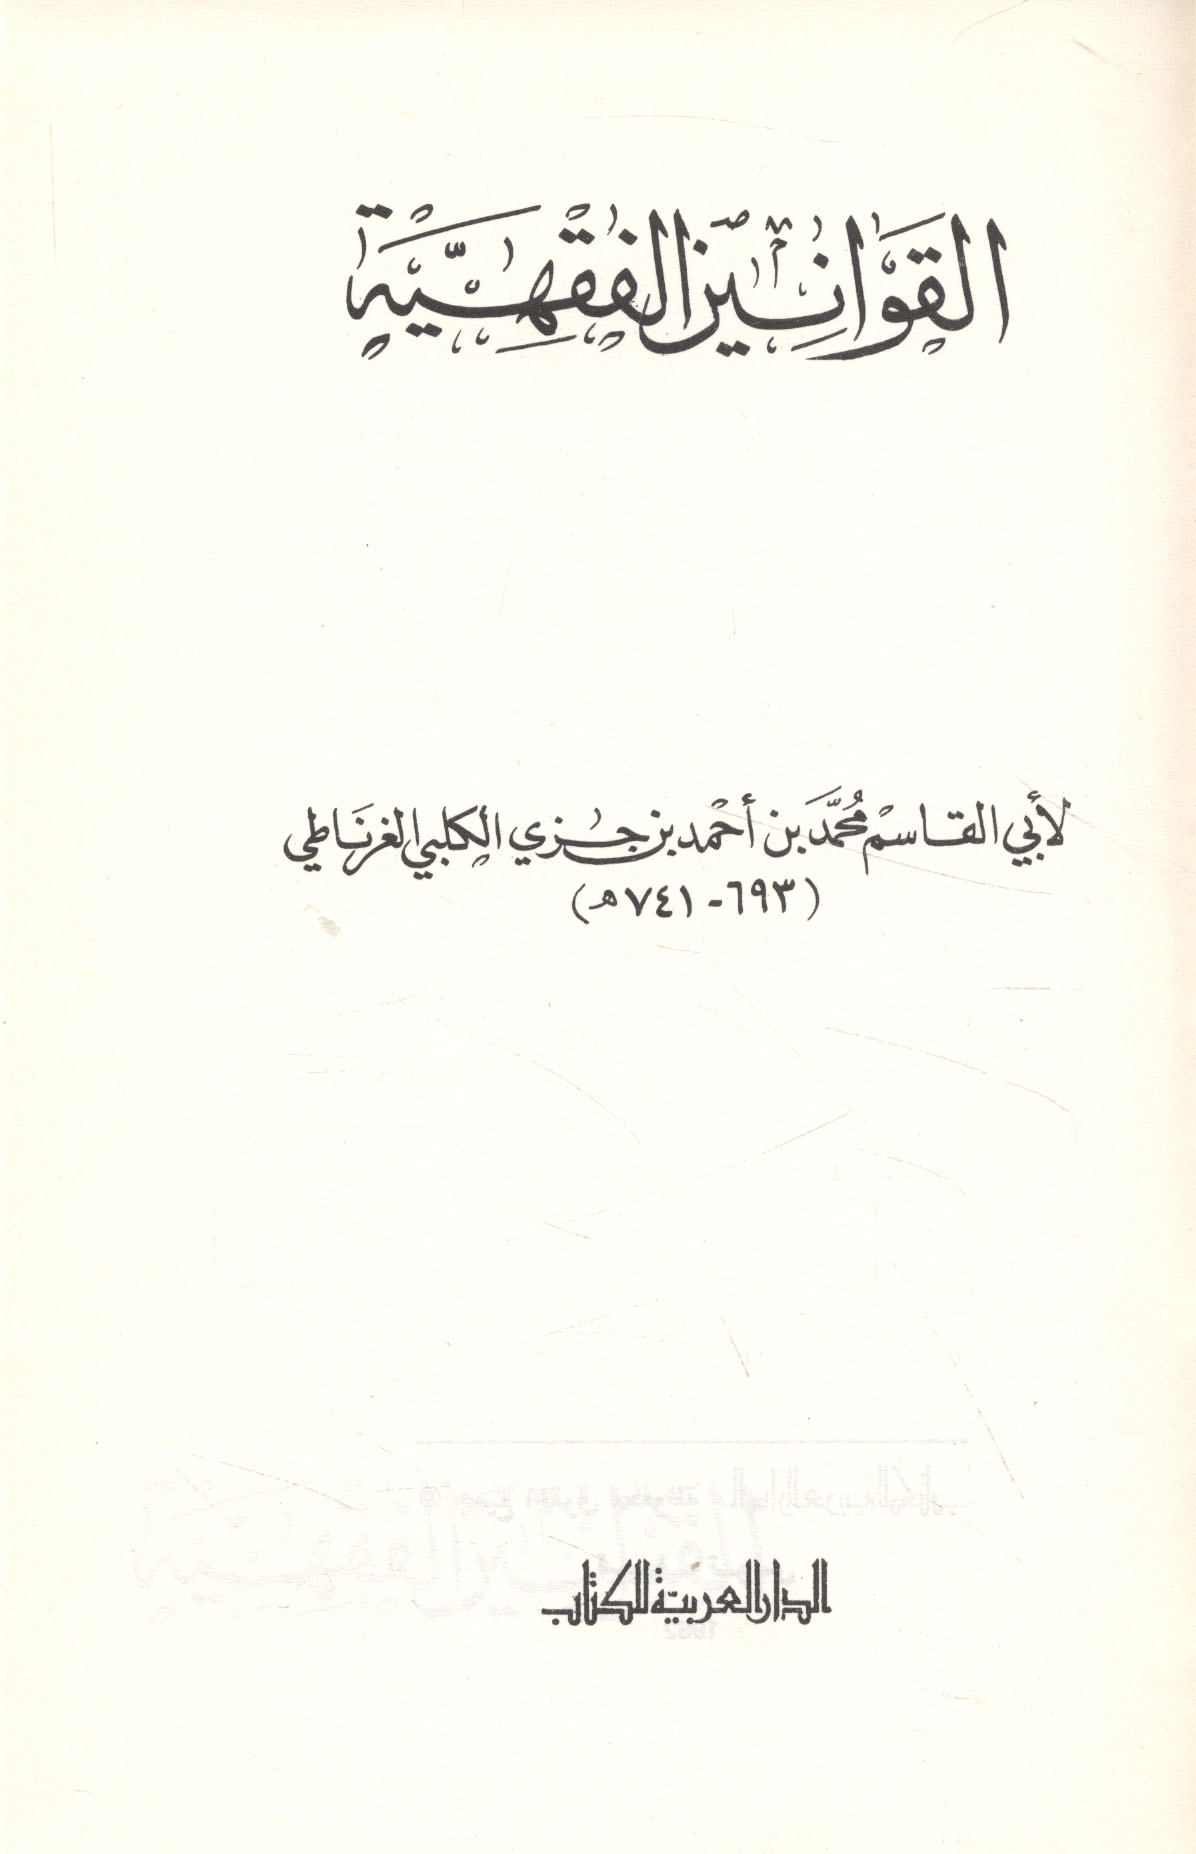 القوانين الفقهية
لأبي القاسم محمد بن أحمد بن جزي الكلبي الغرناطي
(٦٩٣ - ٧٤١ هـ)
الدار العربية للكتاب